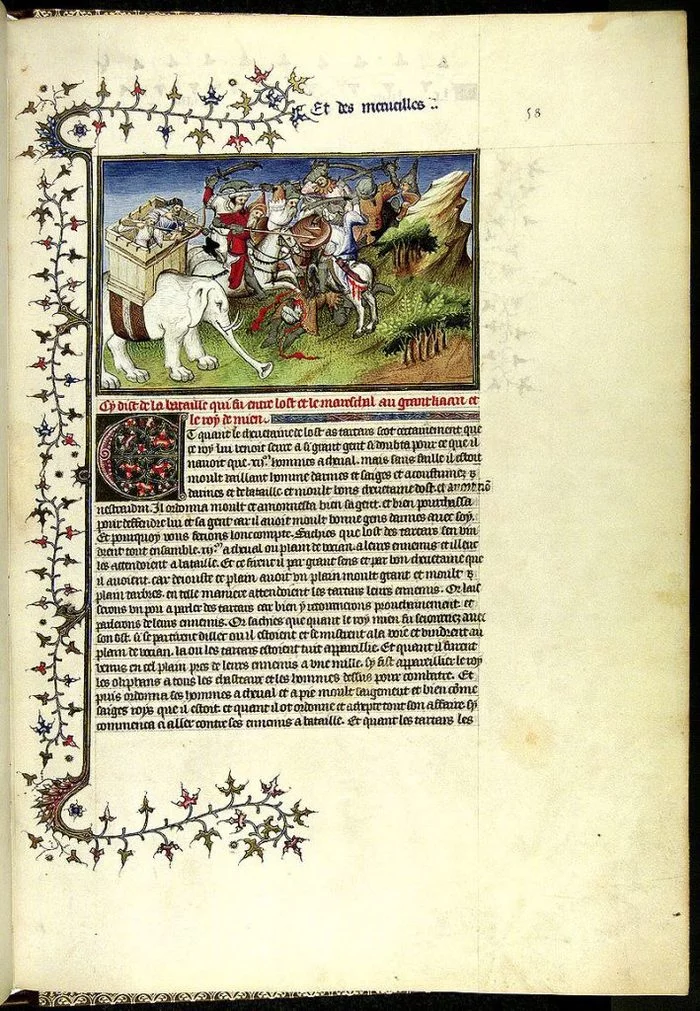 Et des merueilles
58
Cy dist de la bataille qui fu entre lost et le mareschal au grant kaan et
le roy de mien.
Et quant le cheuetaine de lost as tartars scot certainement que
ce roy lui venoit seure a si grant gent si doubta pour ce que il
nauoit que .xij.m hommes a cheual. mais sans faille il estoit
moult vaillant homme darmes et saiges et acoustumez
darmes et de bataille et moult bons cheuetaine dost. et auoit nõ
nescradin. Il ordonna moult et amonnesta bien sa gent. et bien pourchassa
pour deffendre lui et sa gent car il auoit moult bonne gens darmes auec soy.
Et pourquoy vous feroiis lonc compte. Sachies que lost des tartars sen vin
drent tout ensamble .xij.m a cheual ou plain de vocian. a leurs ennemis et illeuc
les attendirent a bataille. Et ce firent il par grant sens et par bon cheuetaine que
il auoient. car deiouste ce plain auoit vn plain moult grant et moult
plain darbres. en telle maniere attendirent les tartars leurs ennemis. Or lais
serons vn pou a parler des tartars car bien y retournerons prouchainement. et
parlerons de leurs ennemis. Or sachies que quant le roy mien fu seiournez auec
son ost. si se partirent diller ou il estoient et se mistrent a la voie et vindrent au
plain de vocian. la ou les tartars estoient tuit appareillie. Et quant il furent
venus en cel plain pres de leurs ennemis a vne mille. sy fist appareillier le roy
les oliphans a tous les chasteaux et les hommes dessus pour combatre. Et
puis ordonna ses hommes a cheual et a pie moult saigement et bien cõme
saiges roys que il estoit et quant il ot ordonne et acheue tout son affaire sy
commenca a aller contre ses ennemis a bataille. Et quant les tartars les